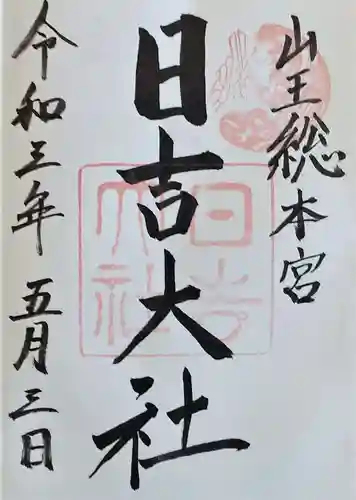 山王総本宮
日吉大社
令和三年 五月三日
日吉大社